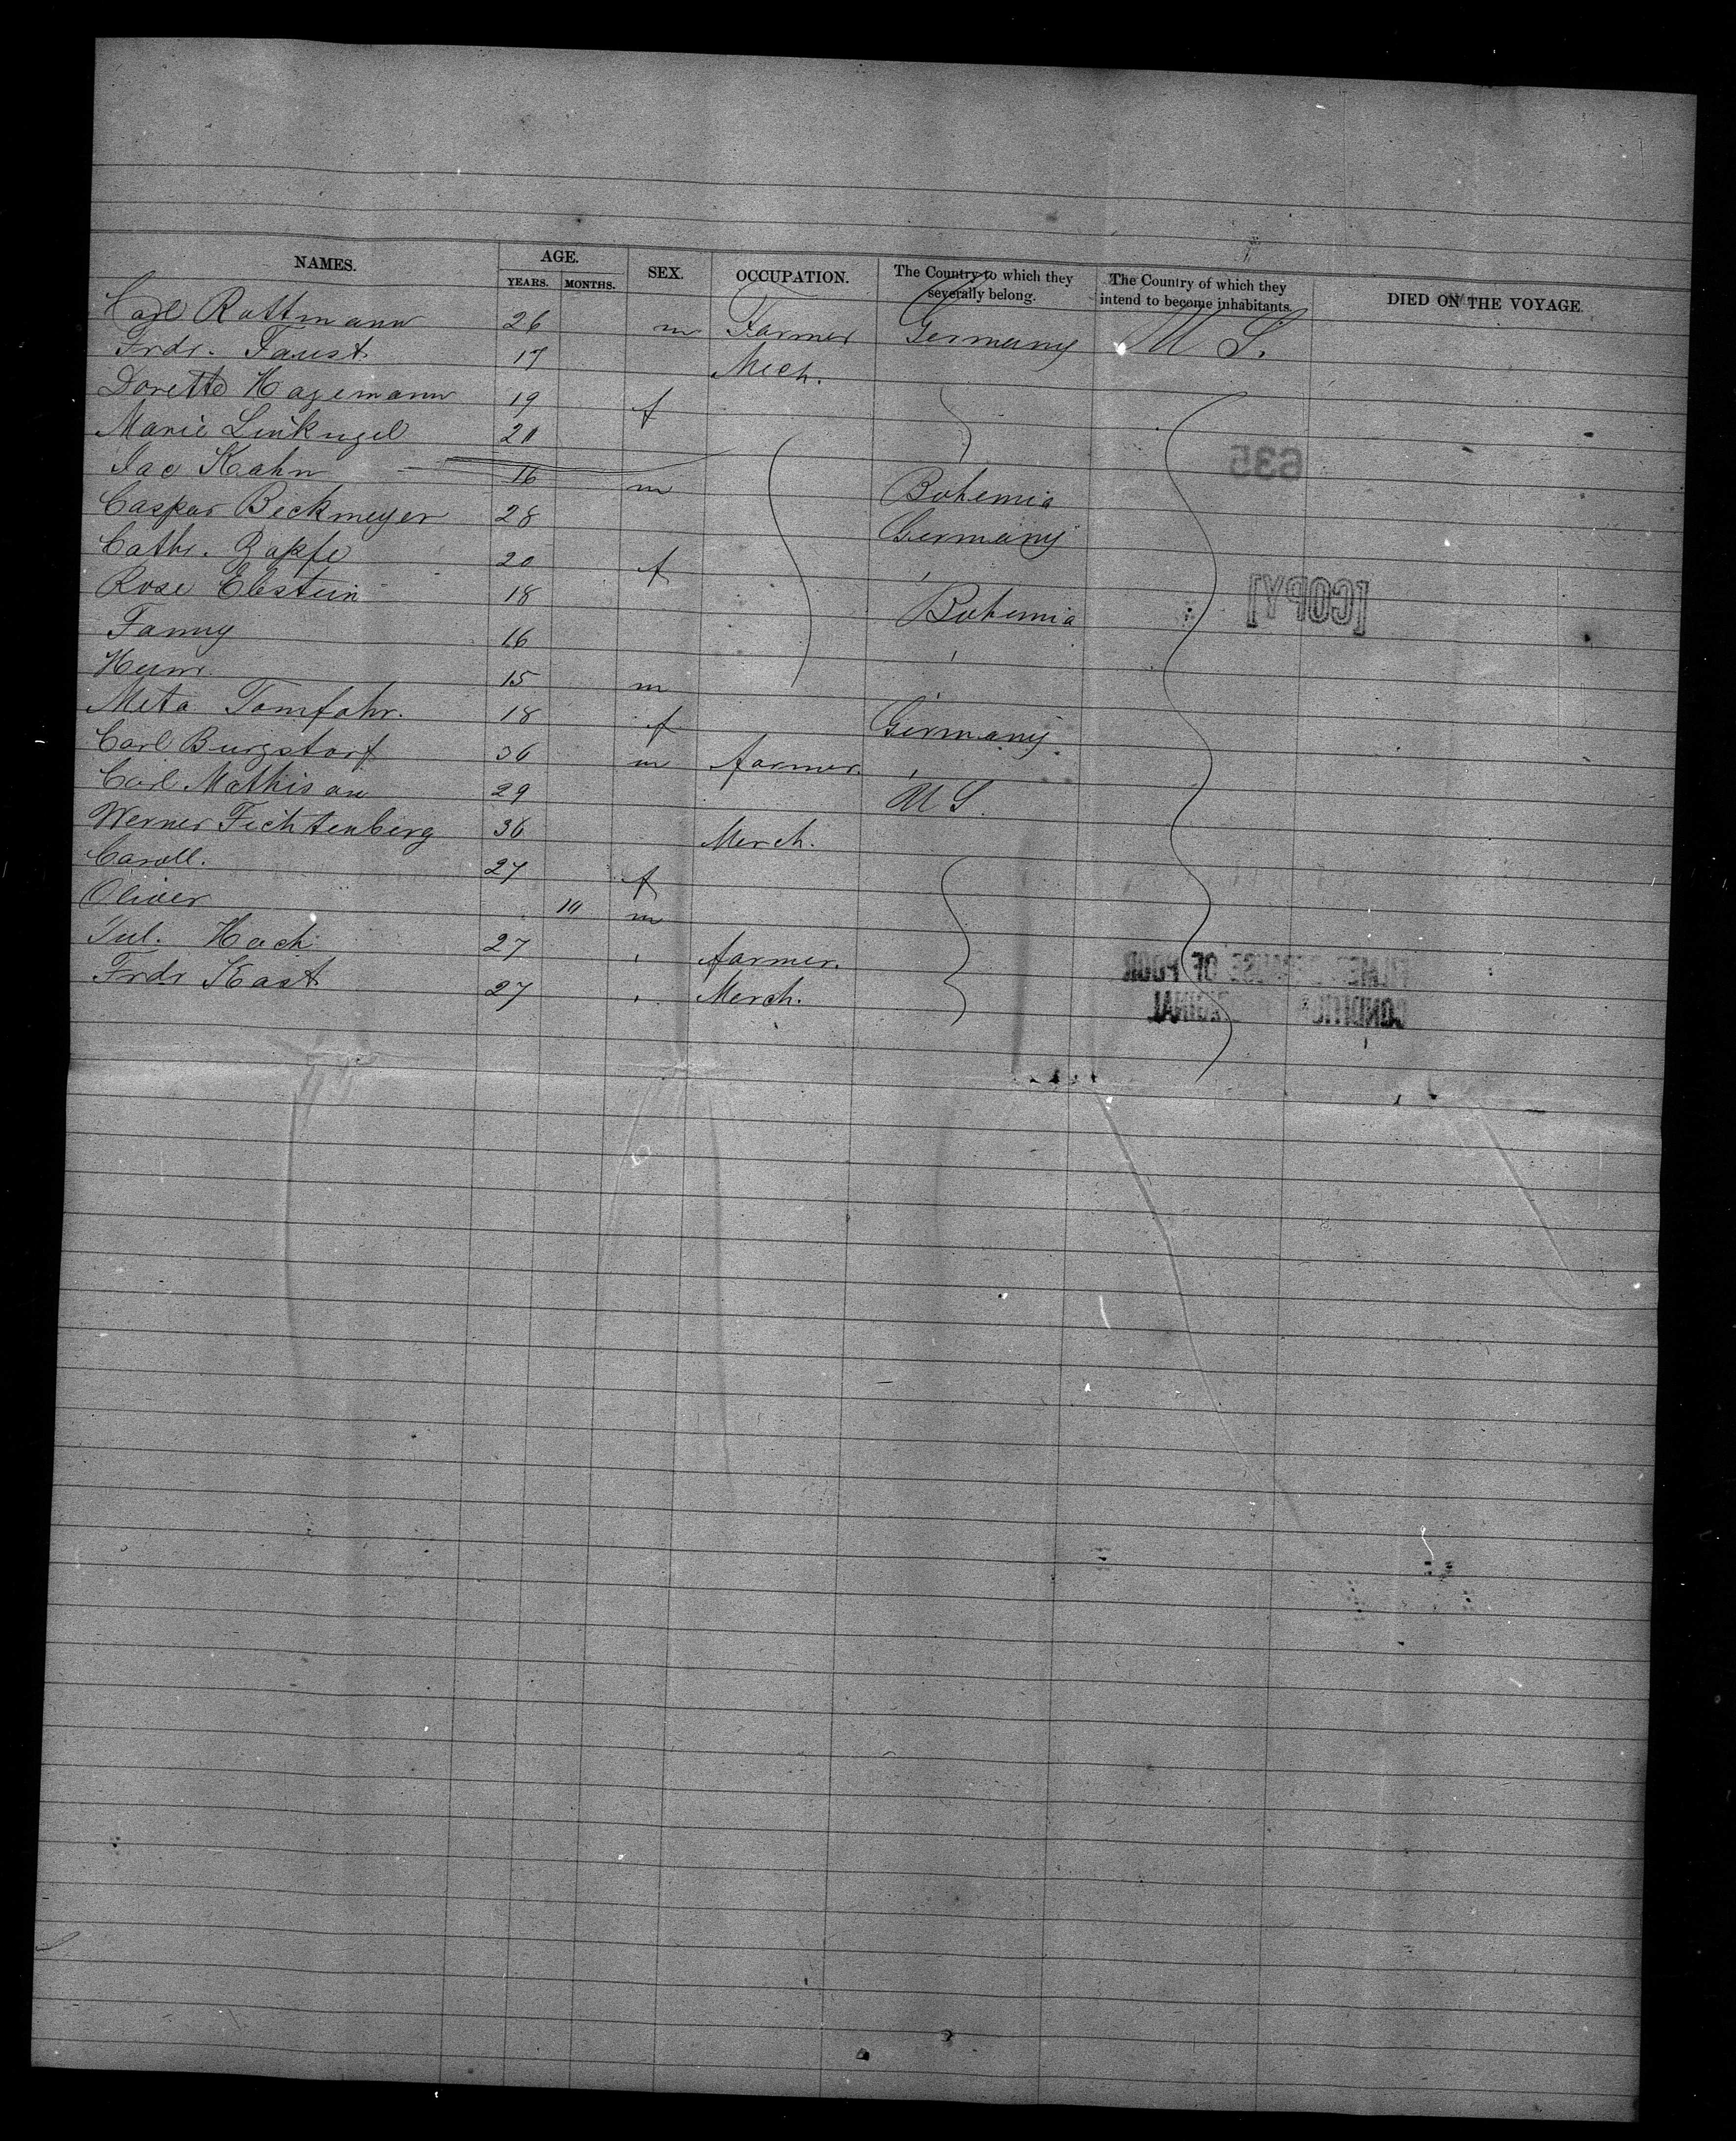 NAMES. AGE. SEX. OCCUPATION. The Country to which they severally belong. The Country of which they intend to become inhabitants. DIED ON THE VOYAGE.
YEARS. MONTHS.
Carl Rottmann 26 m Farmer Germany U S.
Frdr. Faust 17 Mech.
Dorette Hagemann 19 f
Marie Linkugel 20
Isac Kahn 16 m Bohemia
Caspar Beckmeyer 28 Germany
Cathr. Zapfe 20 f '
Rose Ebstein 18 Bohemia
Fanny 16 '
Heinr. 15 m '
Meta Tomfohr. 18 f Germany.
Carl Burgstorf 36 m farmer. '
Carl Mathisen 29 U S.
Werner Fichtenberg 36 Merch.
Caroll. 27 f
Oliver 10 m
Jul. Hach 27 ' farmer.
Frdr Kast 27 ' Merch.
635
[COPY]